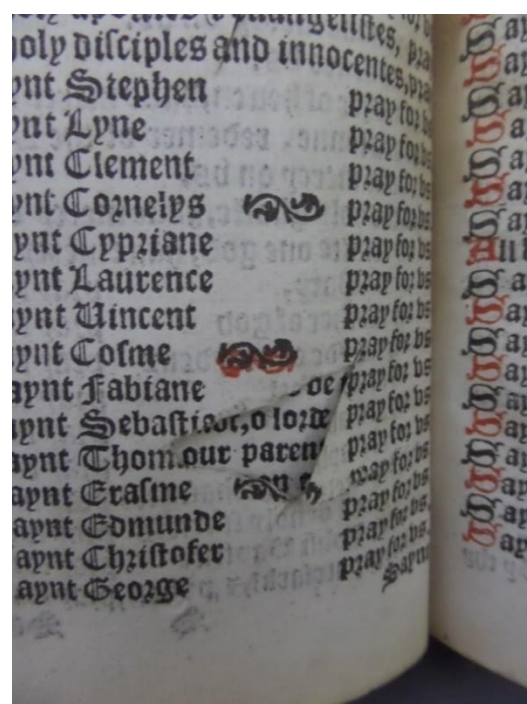 holy disciples and innocentes, pra
ynt Stephen pray for vs
ynt Lyne pray for vs
ynt Clement pray for vs
ynt Cornelys pray for vs
ynt Cypriane pray for vs
ynt Laurence pray for vs
ynt Uincent pray for vs
ynt Cosme pray for vs
aynt Fabiane pray for vs
aynt Sebasti o lorde pray for vs
aynt Thom our paren pray for vs
aynt Erasme pray for vs
aynt Edmunde pray for vs
aynt Christofer pray for vs.
aynt George Saynt